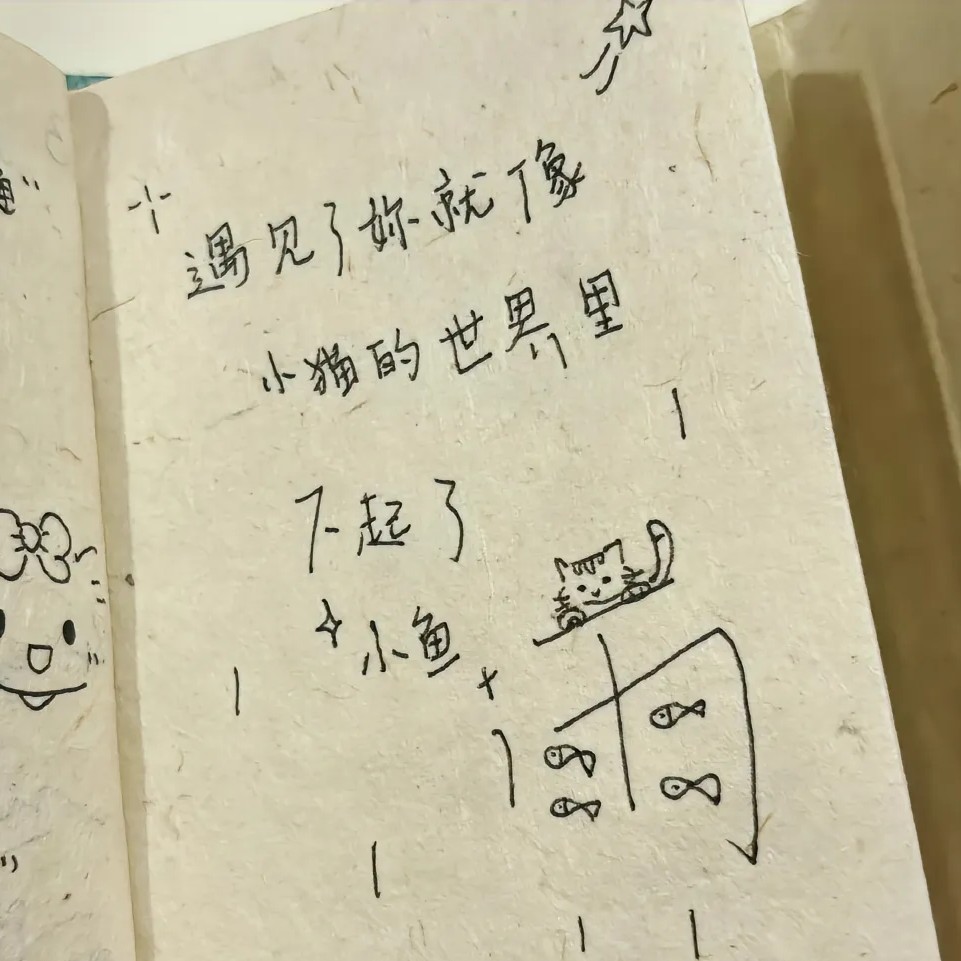 遇见了妳就像
小猫的世界里
下起了
小鱼
雨